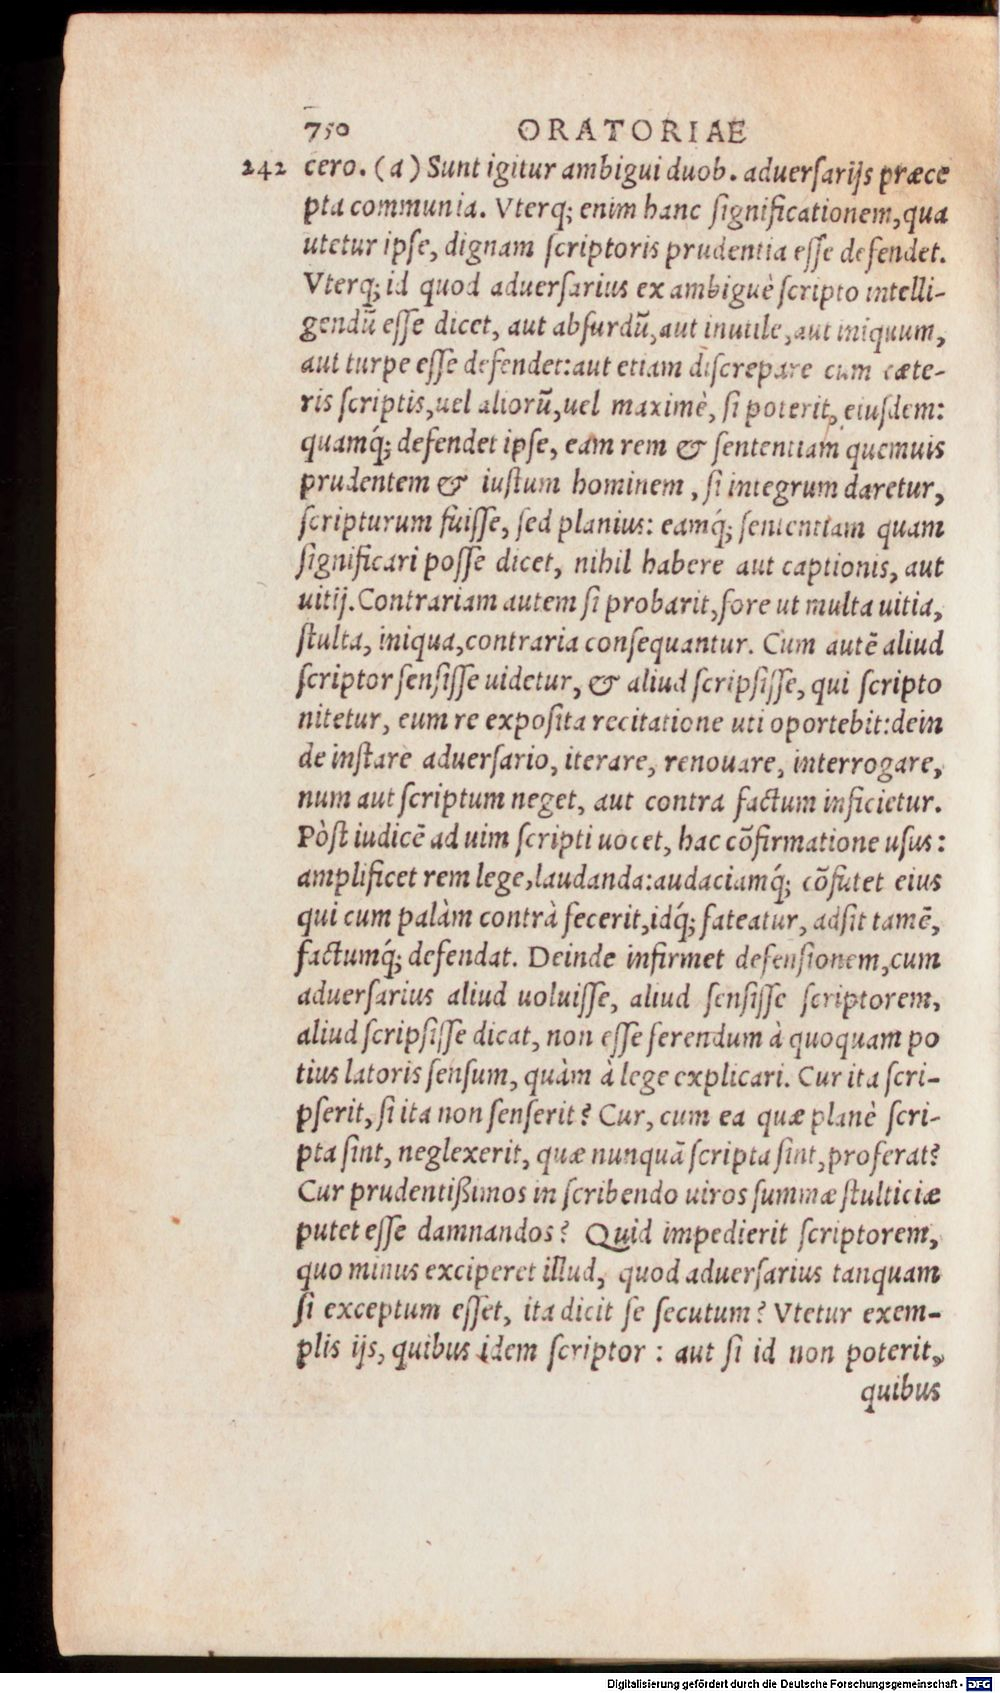 750 ORATORIAE
242 cero. (a) Sunt igitur ambigui duob. aduersarijs præce
pta communia. Vterq; enim hanc significationem, qua
utetur ipse, dignam scriptoris prudentia esse defendet.
Vterq; id quod aduersarius ex ambiguè scripto intelli-
gendũ esse dicet, aut absurdũ, aut inutile, aut iniquum,
aut turpe esse defendet: aut etiam discrepare cum cæte-
ris scriptis, uel aliorũ, uel maximè, si poterit, eiusdem:
quamq́; defendet ipse, eam rem & sententiam quemuis
prudentem & iustum hominem, si integrum daretur,
scripturum fuisse, sed planius: eamq́; sententiam quam
significari posse dicet, nihil habere aut captionis, aut
uitij. Contrariam autem si probarit, fore ut multa uitia,
stulta, iniqua, contraria consequantur. Cum autẽ aliud
scriptor sensisse uidetur, & aliud scripsisse, qui scripto
nitetur, eum re exposita recitatione uti oportebit: dein
de instare aduersario, iterare, renouare, interrogare,
num aut scriptum neget, aut contra factum inficietur.
Pòst iudicẽ ad uim scripti uocet, hac cõfirmatione usus:
amplificet rem lege, laudanda: audaciamq́; cõfutet eius
qui cum palàm contrà fecerit, idq́; fateatur, adsit tamẽ,
factumq́; defendat. Deinde infirmet defensionem, cum
aduersarius aliud uoluisse, aliud sensisse scriptorem,
aliud scripsisse dicat, non esse ferendum à quoquam po
tius latoris sensum, quàm à lege explicari. Cur ita scri-
pserit, si ita non senserit? Cur, cum ea quæ planè scri-
pta sint, neglexerit, quæ nunquã scripta sint, proferat?
Cur prudentißimos in scribendo uiros summæ stulticiæ
putet esse damnandos? Quid impedierit scriptorem,
quo minus exciperet illud, quod aduersarius tanquam
si exceptum esset, ita dicit se secutum? Vtetur exem-
plis ijs, quibus idem scriptor: aut si id non poterit,
quibus
Digitalisierung gefördert durch die Deutsche Forschungsgemeinschaft - DFG